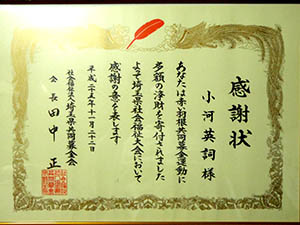 感謝状
小河英詞様
あなたは赤い羽根共同募金運動に
多額の浄財を寄付されました
よって埼玉県社会福祉大会において
感謝の意を表します
平成二十五年十一月二十二日
社会福祉法人埼玉県共同募金会
会長田中正